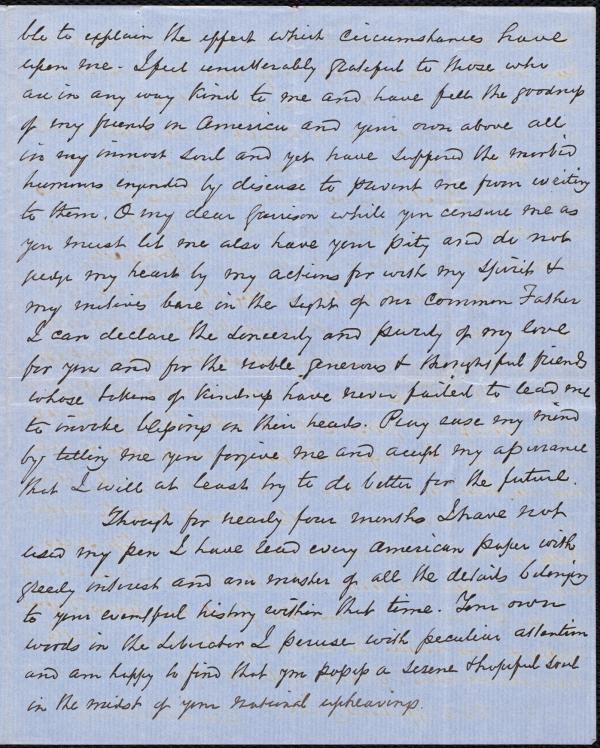 ble to explain the effect which circumstances have
upon me - I feel unutterably grateful to those who
are in any way kind to me and have felt the goodness
of my friends in America and your own above all
in my inmost soul and yet have suffered the morbid
humours engended by disease to prevent me from writing
to them. O my dear Garrison while you censure me as
you must let me also have your pity and do not
judge my heart by my actions for with my spirit &
my motives bare in the sight of our common Father
I can declare the sincerity and purity of my love
for you and for the noble generous & thoughtful friends
whose tokens of kindness have never failed to lead me
to invoke blessings on their heads. Pray ease my mind
by telling me you forgive me and accept my assurance
that I will at least try to do better for the future.
Though for nearly four months I have not
used my pen I have read every American paper with
greedy interest and am master of all the details belonging
to your eventful history within that time. Your own
words in the Liberator I peruse with peculiar attention
and am happy to find that you possess a serene & hopeful soul
in the midst of your national upheavings.